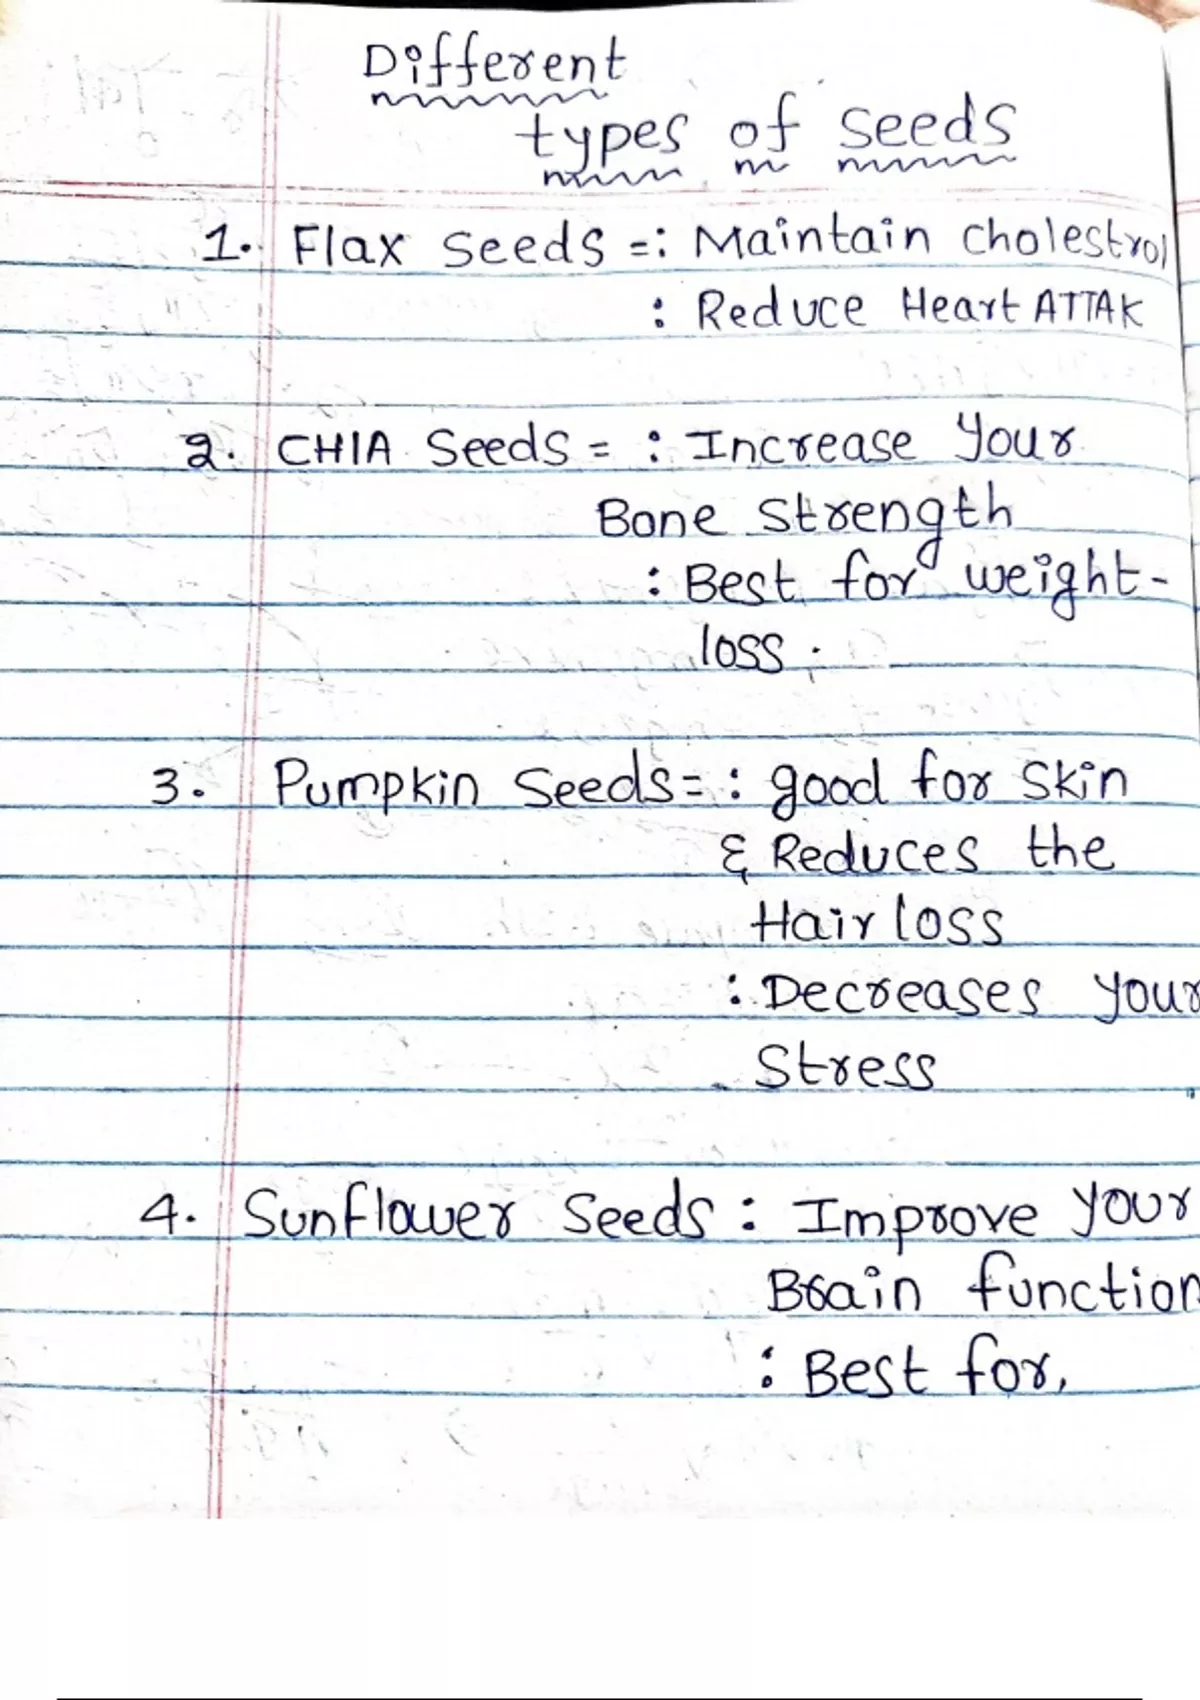 Different
types of seeds
1. Flax seeds =: Maintain cholestrol
: Reduce Heart ATTAK
2. CHIA Seeds = : Increase your
Bone strength
: Best for weight-
loss .
3. Pumpkin Seeds = : good for skin
& Reduces the
Hair loss
: Decreases your
Stress
4. Sunflower Seeds : Improve your
Brain function
: Best for,